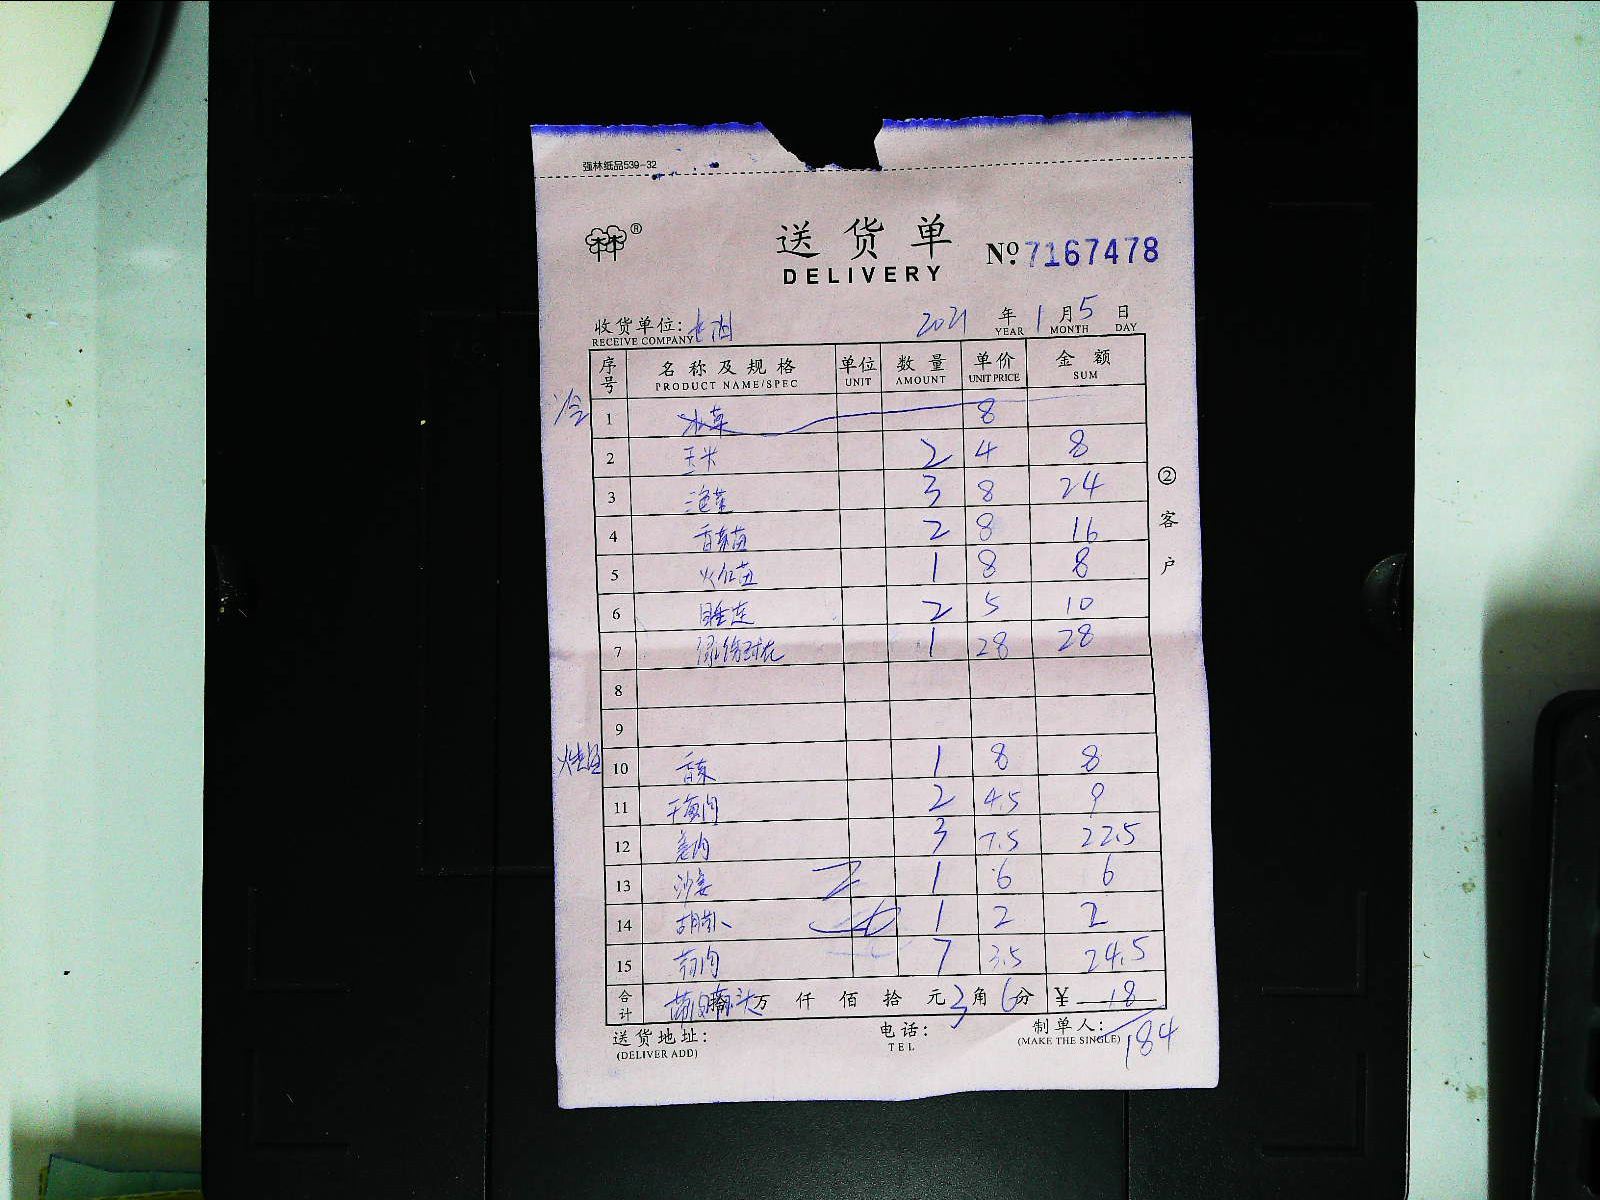 强林纸品539-32
林®
送货单
DELIVERY
No. 7167478
收货单位: 2021年1月5日
RECEIVE COMPANY YEAR MONTH DAY
序号 名称及规格 单位 数量 单价 金额
PRODUCT NAME/SPEC UNIT AMOUNT UNIT PRICE SUM
冷
1 冰草 8
2 玉米 2 4 8
3 泡菜 3 8 24
4 香菜苗 2 8 16
5 火红苗 1 8 8
6 睡莲 2 5 10
7 1 28 28
8
9
10 香菜 1 8 8
11 2 4.5 9
12 姜肉 3 7.5 22.5
13 沙姜 1 6 6
14 胡卜 1 2 2
15 7 3.5 24.5
合计 万仟佰拾元3角6分 ¥18
送货地址: 电话: 制单人:
(DELIVER ADD) TEL (MAKE THE SINGLE)
184
②客户